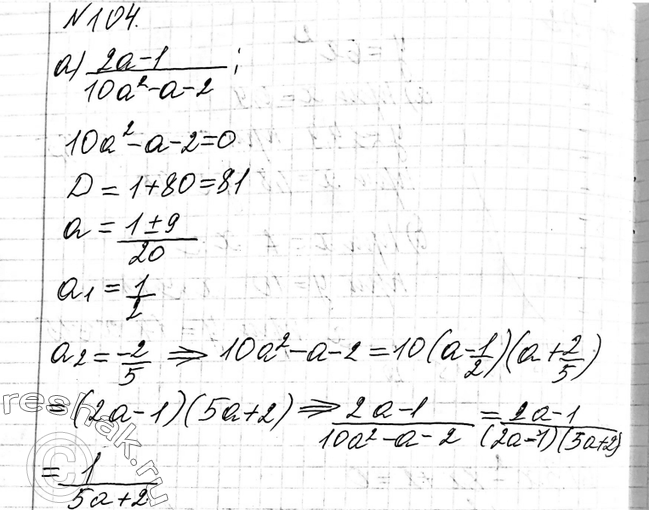 №104.
а) (2a-1)/(10a²-a-2);
10a²-a-2=0
D=1+80=81
a=(1±9)/20
a₁=1/2
a₂=-2/5 ⇒ 10a²-a-2=10(a-1/2)(a+2/5)
=(2a-1)(5a+2) ⇒ (2a-1)/(10a²-a-2)=(2a-1)/((2a-1)(5a+2))
=1/(5a+2)
reshak.ru